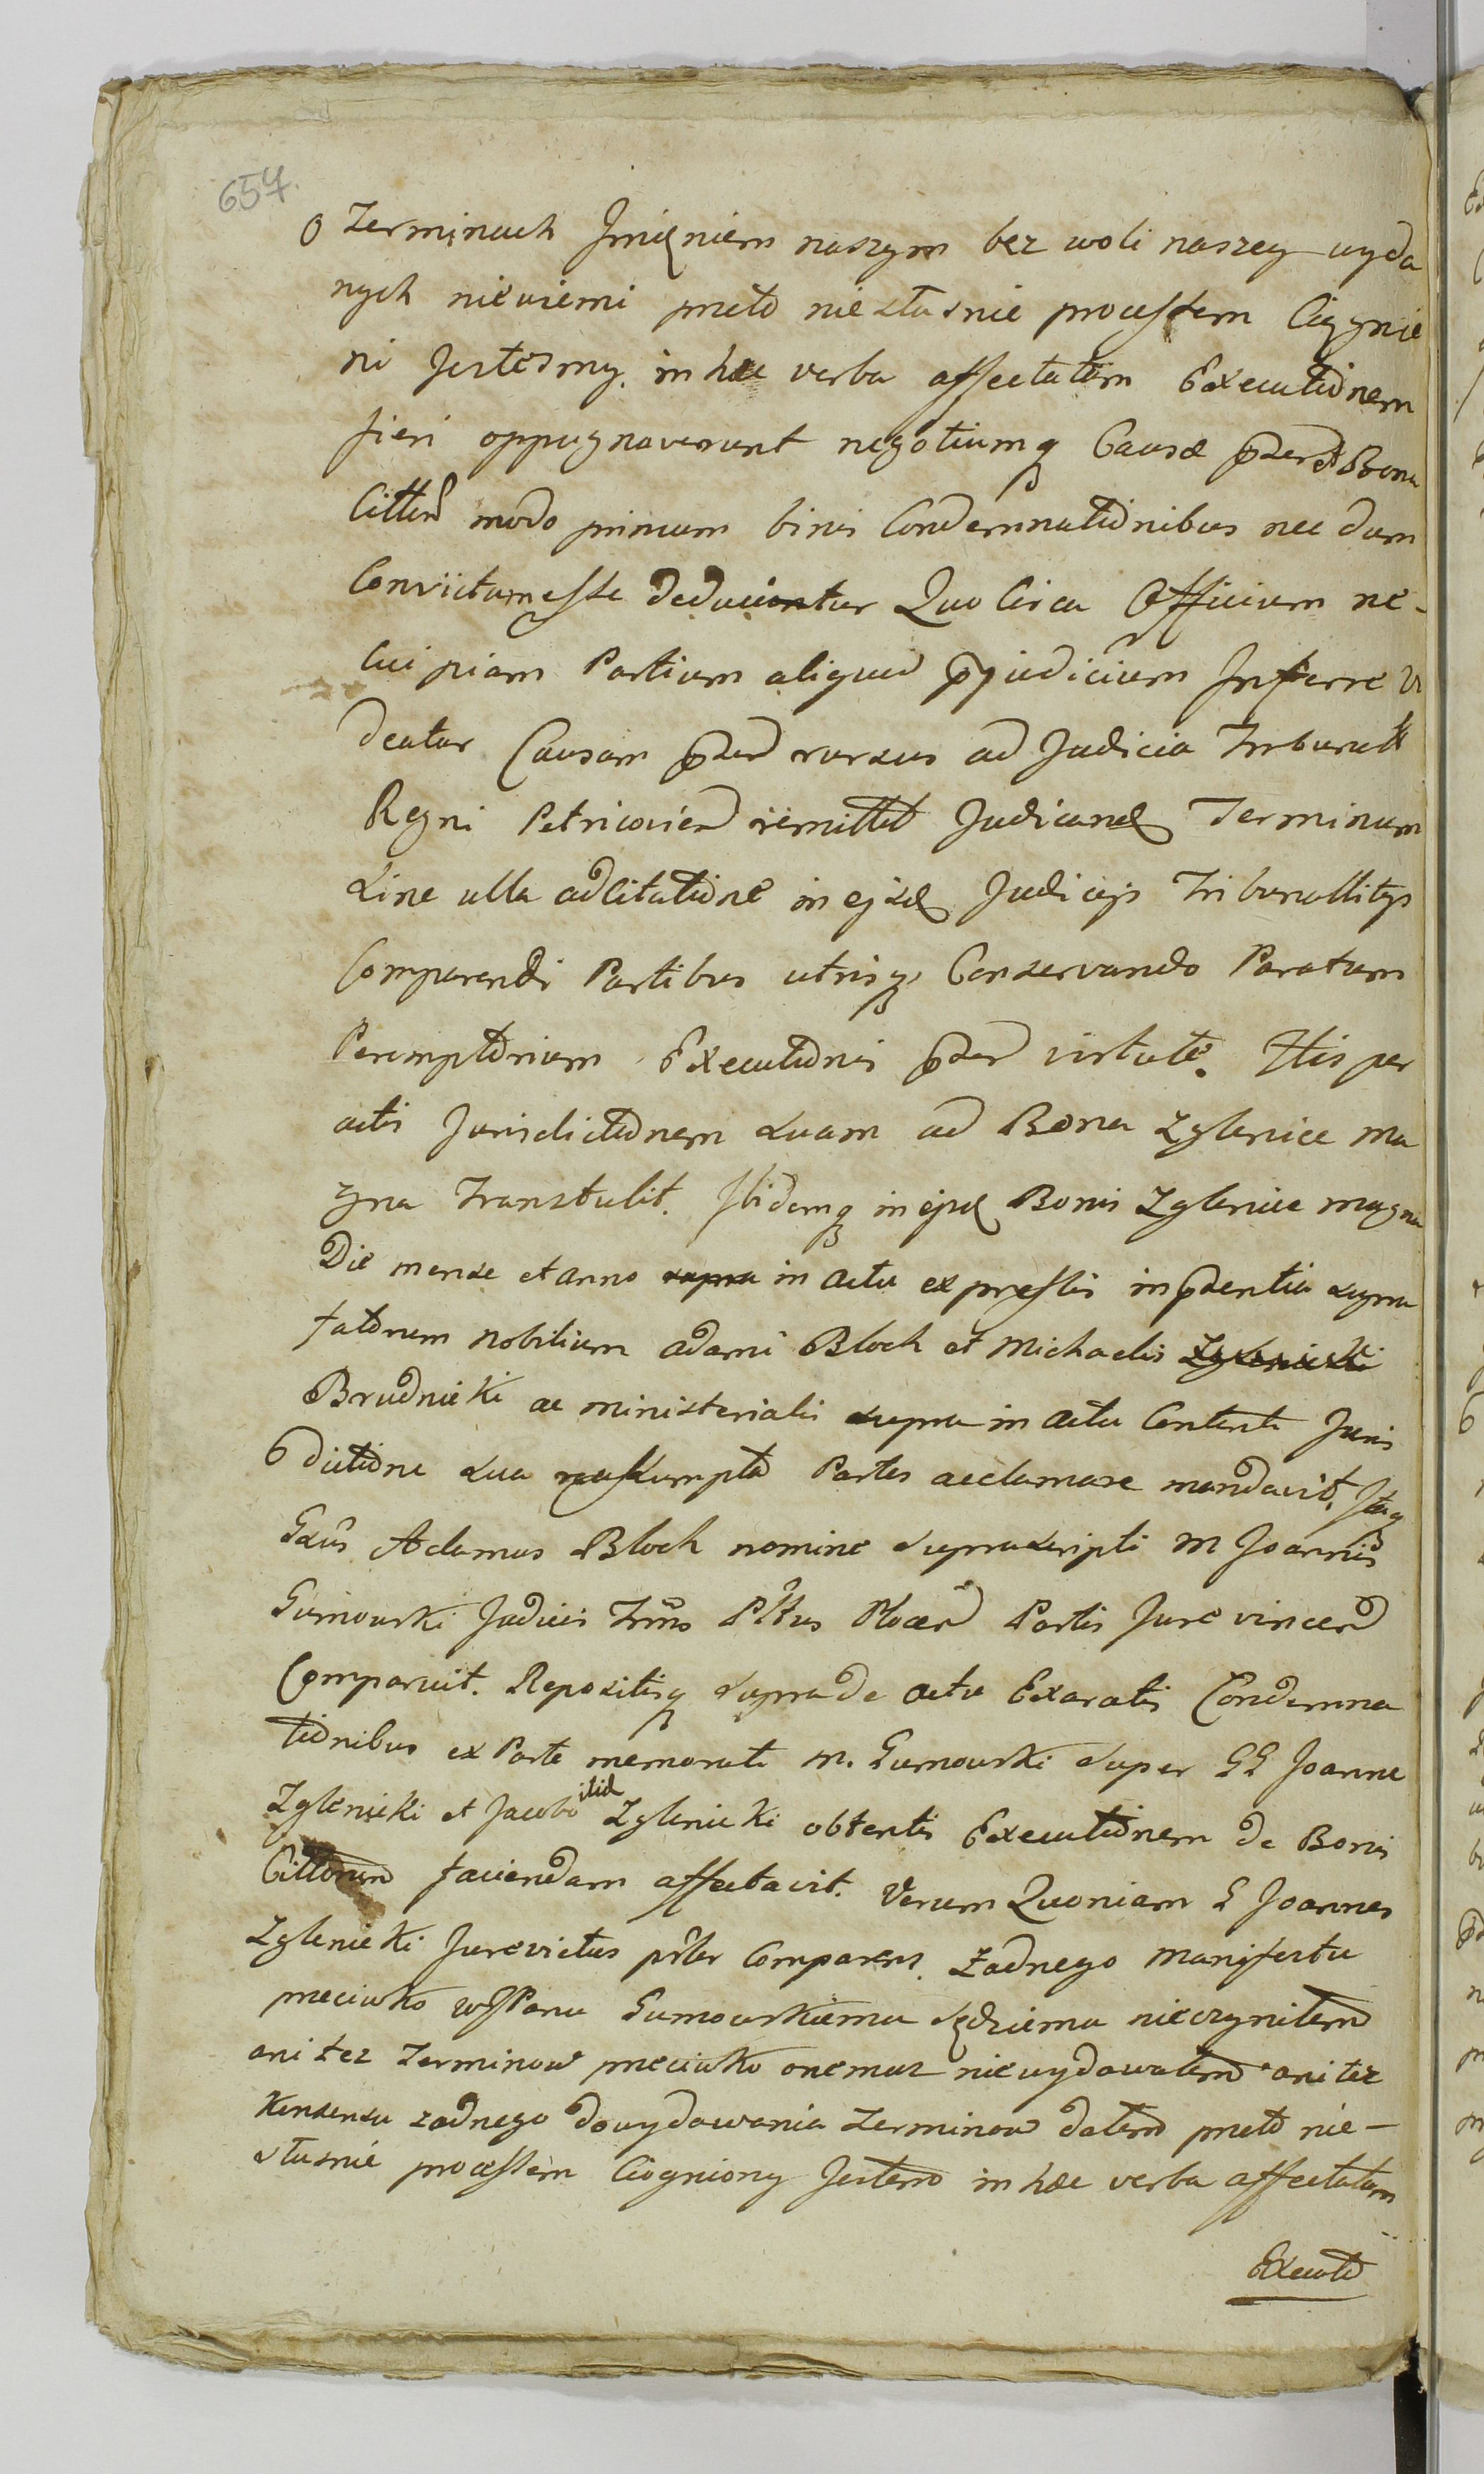 657.
o Terminach Jmięniem naszym bez woli naszey wyda
nych niewiemi przeto niesłusnie processem Ciągnie
ni Jestesmy. in hæc verba affectatam Executionem
fieri oppugnaverunt negotiumq Causæ pserđ Bona
Cittđ modo primum binis Condemnationibus nec dum
Convictum esse deducuntur Quo Circa Officium ne-
Cui piam Partium aliquid pjudicium Inferre vi
deatur Causam psed rursus ad Judicia Tribunall
Regni Petricovien remittit Judicand Terminum
sine ulla adcitatione in ejsd Judicijs Tribunallitijs
Comparendi Partibus utrisq Conservando Paratum
Peremptorium Executionis psed virtute. His per
actis Jurisdictionem suam ad Bona Zglenice ma
gna Transtulit. Ibidemq in ejusd Bonis Zglenice magna
Die mense et anno supra in actu expressis in psentia supra
fatorum Nobilium Adami Bloch et Michaelis Zglenicki
Brudnicki ac ministerialis supra in actu Contenti Juris
dictione sua reassumpta Partes acclamare mandavit, Itaq
Gsus Adamus Bloch nomine suprascripti M Joannis
Gumowski Judicis Trris Pttus Plocen Partis Jure vincen
Comparuit. Repositisq supra de actu Exaratis Condemna
tionibus ex Parte memorati M. Gumowski super GG Joanne
Zglenicki et Jacobo itid Zglenicki obtentis Executionem de Bonis
Cittorum faciendam affectavit. Verum Quoniam G Joannes
Zglenicki Jurevictus prlter Comparens. Zadnego Manifestu
preciwko WJPanu Gumowskiemu sędziemu nieczynilem
ani tez Terminow preciwko onemuz niewydawalem ani tez
Konsensu zadnego do wydawania Terminow dalem preto nie-
słusnie processem Ciogniony Jestem in hæc verba affectatam
Executio